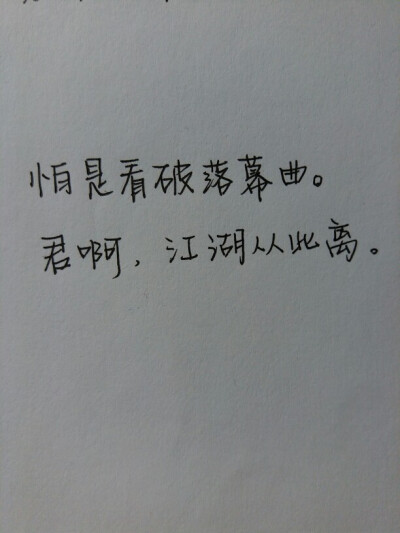 怕是看破落幕曲。
君啊，江湖从此离。